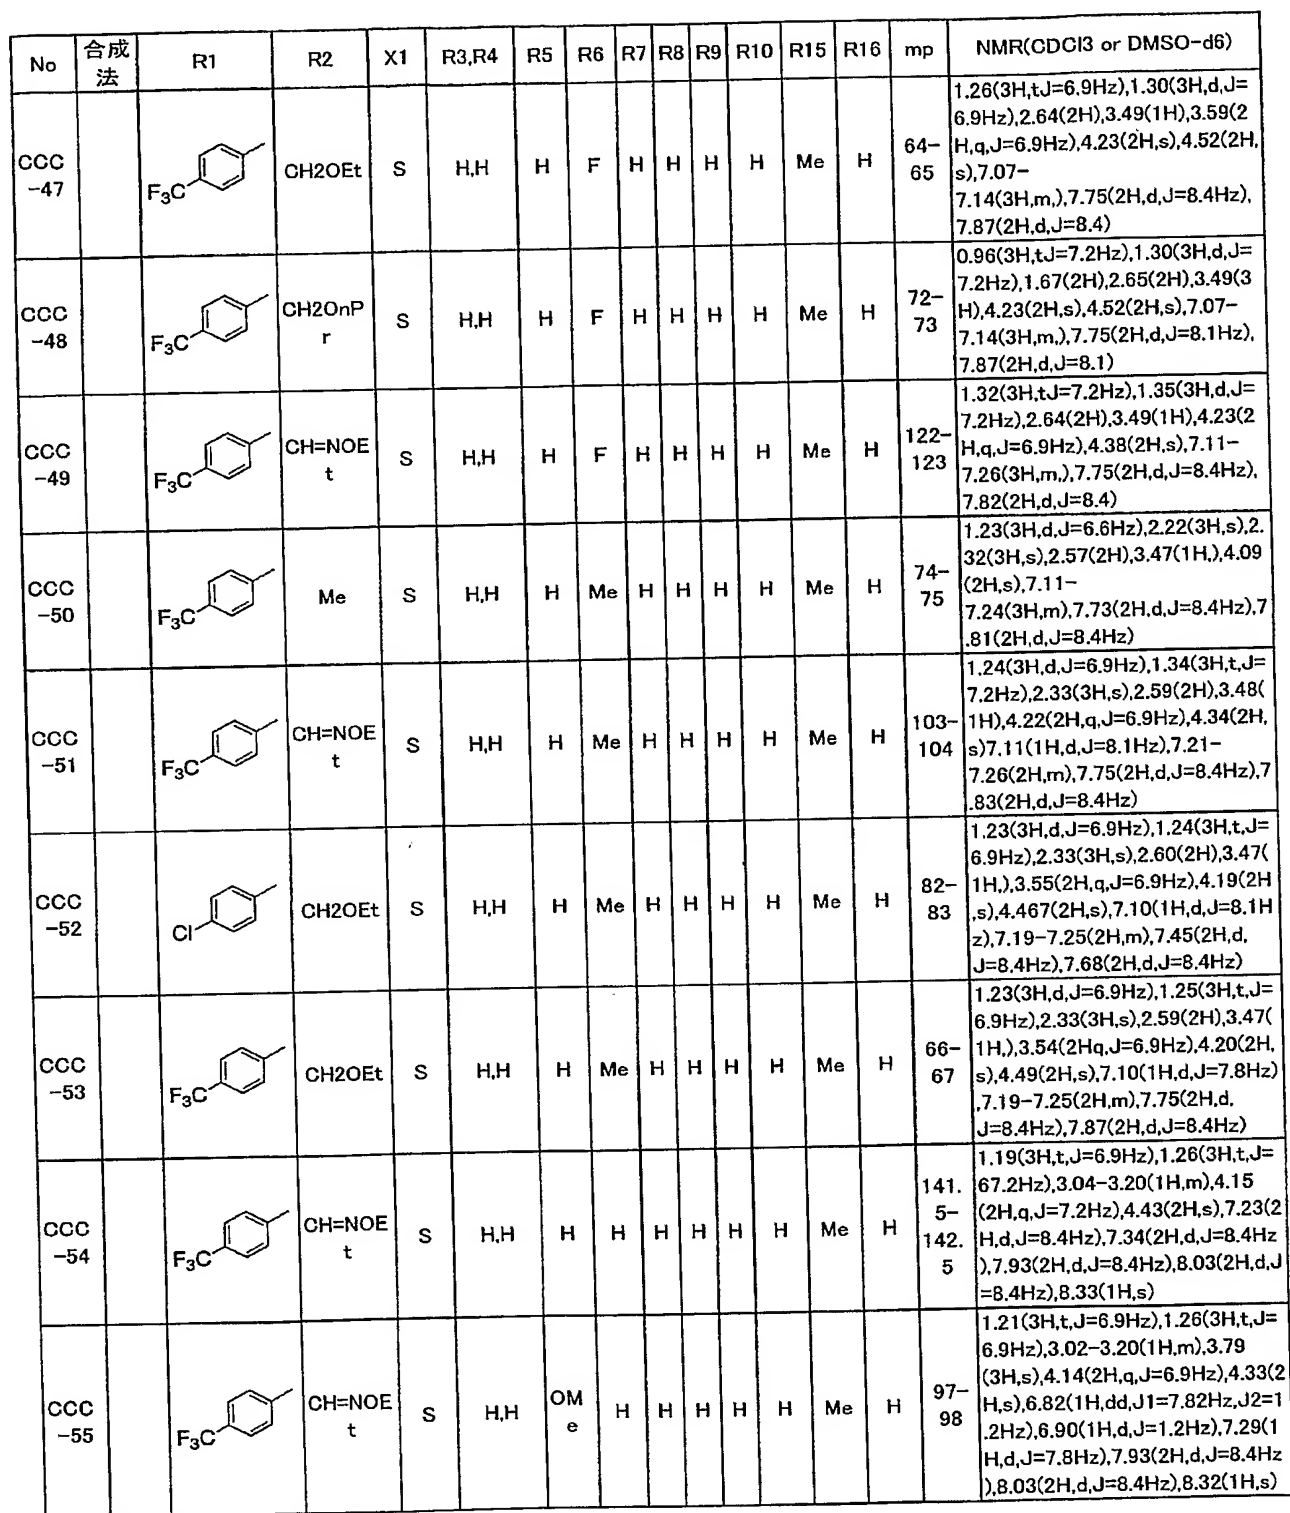 No 合成法 R1 R2 X1 R3,R4 R5 R6 R7 R8 R9 R10 R15 R16 mp NMR(CDCl3 or DMSO-d6)
CCC-47 F3C CH2OEt S H,H H F H H H H Me H 64-65
1.26(3H,tJ=6.9Hz),1.30(3H,d,J=
6.9Hz),2.64(2H),3.49(1H),3.59(2
H,q,J=6.9Hz),4.23(2H,s),4.52(2H,
s),7.07-
7.14(3H,m,),7.75(2H,d,J=8.4Hz),
7.87(2H,d,J=8.4)
CCC-48 F3C CH2OnPr S H,H H F H H H H Me H 72-73
0.96(3H,tJ=7.2Hz),1.30(3H,d,J=
7.2Hz),1.67(2H),2.65(2H),3.49(3
H),4.23(2H,s),4.52(2H,s),7.07-
7.14(3H,m,),7.75(2H,d,J=8.1Hz),
7.87(2H,d,J=8.1)
CCC-49 F3C CH=NOEt S H,H H F H H H H Me H 122-123
1.32(3H,tJ=7.2Hz),1.35(3H,d,J=
7.2Hz),2.64(2H),3.49(1H),4.23(2
H,q,J=6.9Hz),4.38(2H,s),7.11-
7.26(3H,m,),7.75(2H,d,J=8.4Hz),
7.82(2H,d,J=8.4)
CCC-50 F3C Me S H,H H Me H H H H Me H 74-75
1.23(3H,d,J=6.6Hz),2.22(3H,s),2.
32(3H,s),2.57(2H),3.47(1H,),4.09
(2H,s),7.11-
7.24(3H,m),7.73(2H,d,J=8.4Hz),7
.81(2H,d,J=8.4Hz)
CCC-51 F3C CH=NOEt S H,H H Me H H H H Me H 103-104
1.24(3H,d,J=6.9Hz),1.34(3H,t,J=
7.2Hz),2.33(3H,s),2.59(2H),3.48(
1H),4.22(2H,q,J=6.9Hz),4.34(2H,
s)7.11(1H,d,J=8.1Hz),7.21-
7.26(2H,m),7.75(2H,d,J=8.4Hz),7
.83(2H,d,J=8.4Hz)
CCC-52 Cl CH2OEt S H,H H Me H H H H Me H 82-83
1.23(3H,d,J=6.9Hz),1.24(3H,t,J=
6.9Hz),2.33(3H,s),2.60(2H),3.47(
1H,),3.55(2H,q,J=6.9Hz),4.19(2H
,s),4.467(2H,s),7.10(1H,d,J=8.1H
z),7.19-7.25(2H,m),7.45(2H,d,
J=8.4Hz),7.68(2H,d,J=8.4Hz)
CCC-53 F3C CH2OEt S H,H H Me H H H H Me H 66-67
1.23(3H,d,J=6.9Hz),1.25(3H,t,J=
6.9Hz),2.33(3H,s),2.59(2H),3.47(
1H,),3.54(2Hq,J=6.9Hz),4.20(2H,
s),4.49(2H,s),7.10(1H,d,J=7.8Hz)
,7.19-7.25(2H,m),7.75(2H,d,
J=8.4Hz),7.87(2H,d,J=8.4Hz)
CCC-54 F3C CH=NOEt S H,H H H H H H H Me H 141.5-142.5
1.19(3H,t,J=6.9Hz),1.26(3H,t,J=
67.2Hz),3.04-3.20(1H,m),4.15
(2H,q,J=7.2Hz),4.43(2H,s),7.23(2
H,d,J=8.4Hz),7.34(2H,d,J=8.4Hz
),7.93(2H,d,J=8.4Hz),8.03(2H,d,J
=8.4Hz),8.33(1H,s)
CCC-55 F3C CH=NOEt S H,H OMe H H H H H Me H 97-98
1.21(3H,t,J=6.9Hz),1.26(3H,t,J=
6.9Hz),3.02-3.20(1H,m),3.79
(3H,s),4.14(2H,q,J=6.9Hz),4.33(2
H,s),6.82(1H,dd,J1=7.82Hz,J2=1
.2Hz),6.90(1H,d,J=1.2Hz),7.29(1
H,d,J=7.8Hz),7.93(2H,d,J=8.4Hz
),8.03(2H,d,J=8.4Hz),8.32(1H,s)